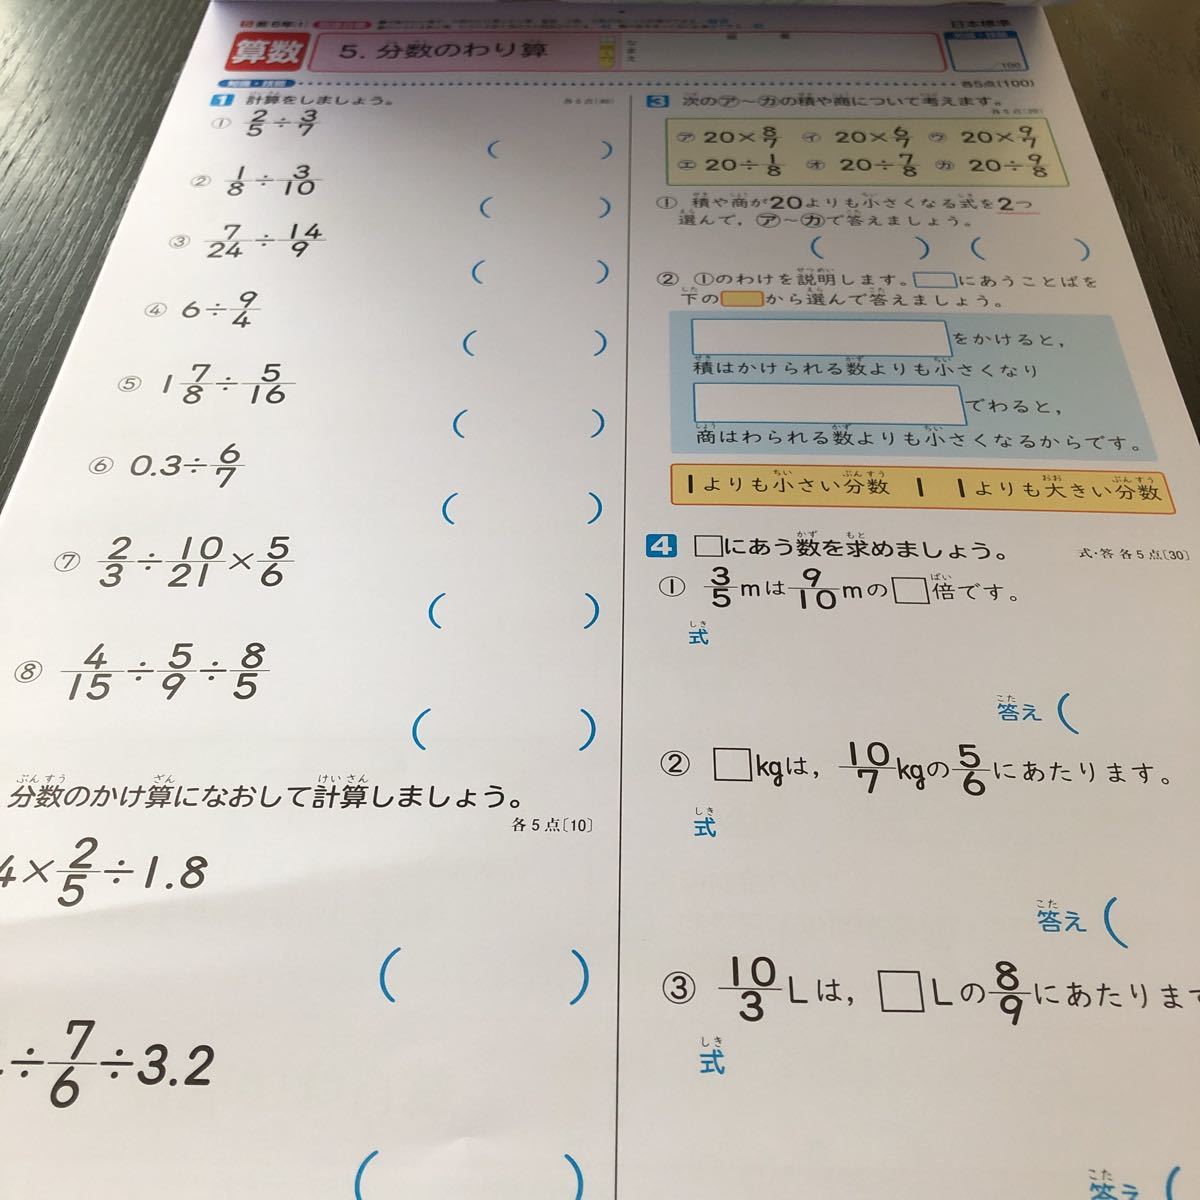 算数
5. 分数のわり算
なまえ
日本標準
/100
各5点(100)
1 計算をしましょう。
① 2/5÷3/7
( )
② 1/8÷3/10
( )
③ 7/24÷14/9
( )
④ 6÷9/4
( )
⑤ 1 7/8÷5/16
( )
⑥ 0.3÷6/7
( )
⑦ 2/3÷10/21×5/6
( )
⑧ 4/15÷5/9÷8/5
( )
分数のかけ算になおして計算しましょう。
各5点〔10〕
4×2/5÷1.8
( )
÷7/6÷3.2
( )
3 次の㋐~㋕の積や商について考えます。
㋐ 20×8/7 ㋑ 20×6/7 ㋒ 20×9/7
㋓ 20÷1/8 ㋔ 20÷7/8 ㋕ 20÷9/8
① 積や商が20よりも小さくなる式を2つ
選んで,㋐~㋕で答えましょう。
( ) ( )
② ①のわけを説明します。□にあうことばを
下の□から選んで答えましょう。
をかけると,
積はかけられる数よりも小さくなり
でわると,
商はわられる数よりも小さくなるからです。
1よりも小さい分数 | 1よりも大きい分数
4 □にあう数を求めましょう。
式・答 各5点〔30〕
① 3/5mは9/10mの□倍です。
式
答え (
② □kgは,10/7kgの5/6にあたります。
式
答え (
③ 10/3Lは,□Lの8/9にあたります
式
答え (